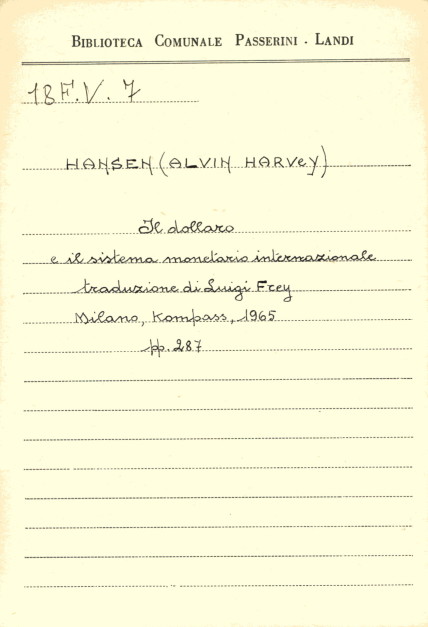 BIBLIOTECA COMUNALE PASSERINI - LANDI
18 F.V. 7
HANSEN (ALVIN HARVEY)
Il dollaro
e il sistema monetario internazionale
traduzione di Luigi Frey
Milano, Kompass, 1965
pp. 287